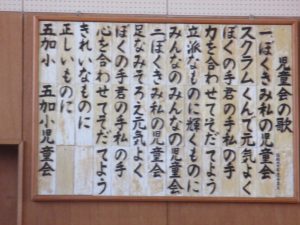 児童会の歌
一 ぼくきみ私の児童会
スクラムくんで元気よく
ぼくの手君の手私の手
力を合わせてそだてよう
立派なものに輝くものに
みんなのみんなの児童会
二 ぼくきみ私の児童会
足なみそろえ元気よく
ぼくの手君の手私の手
心を合わせてそだてよう
きれいなものに
正しいものに
五加小 五加小児童会